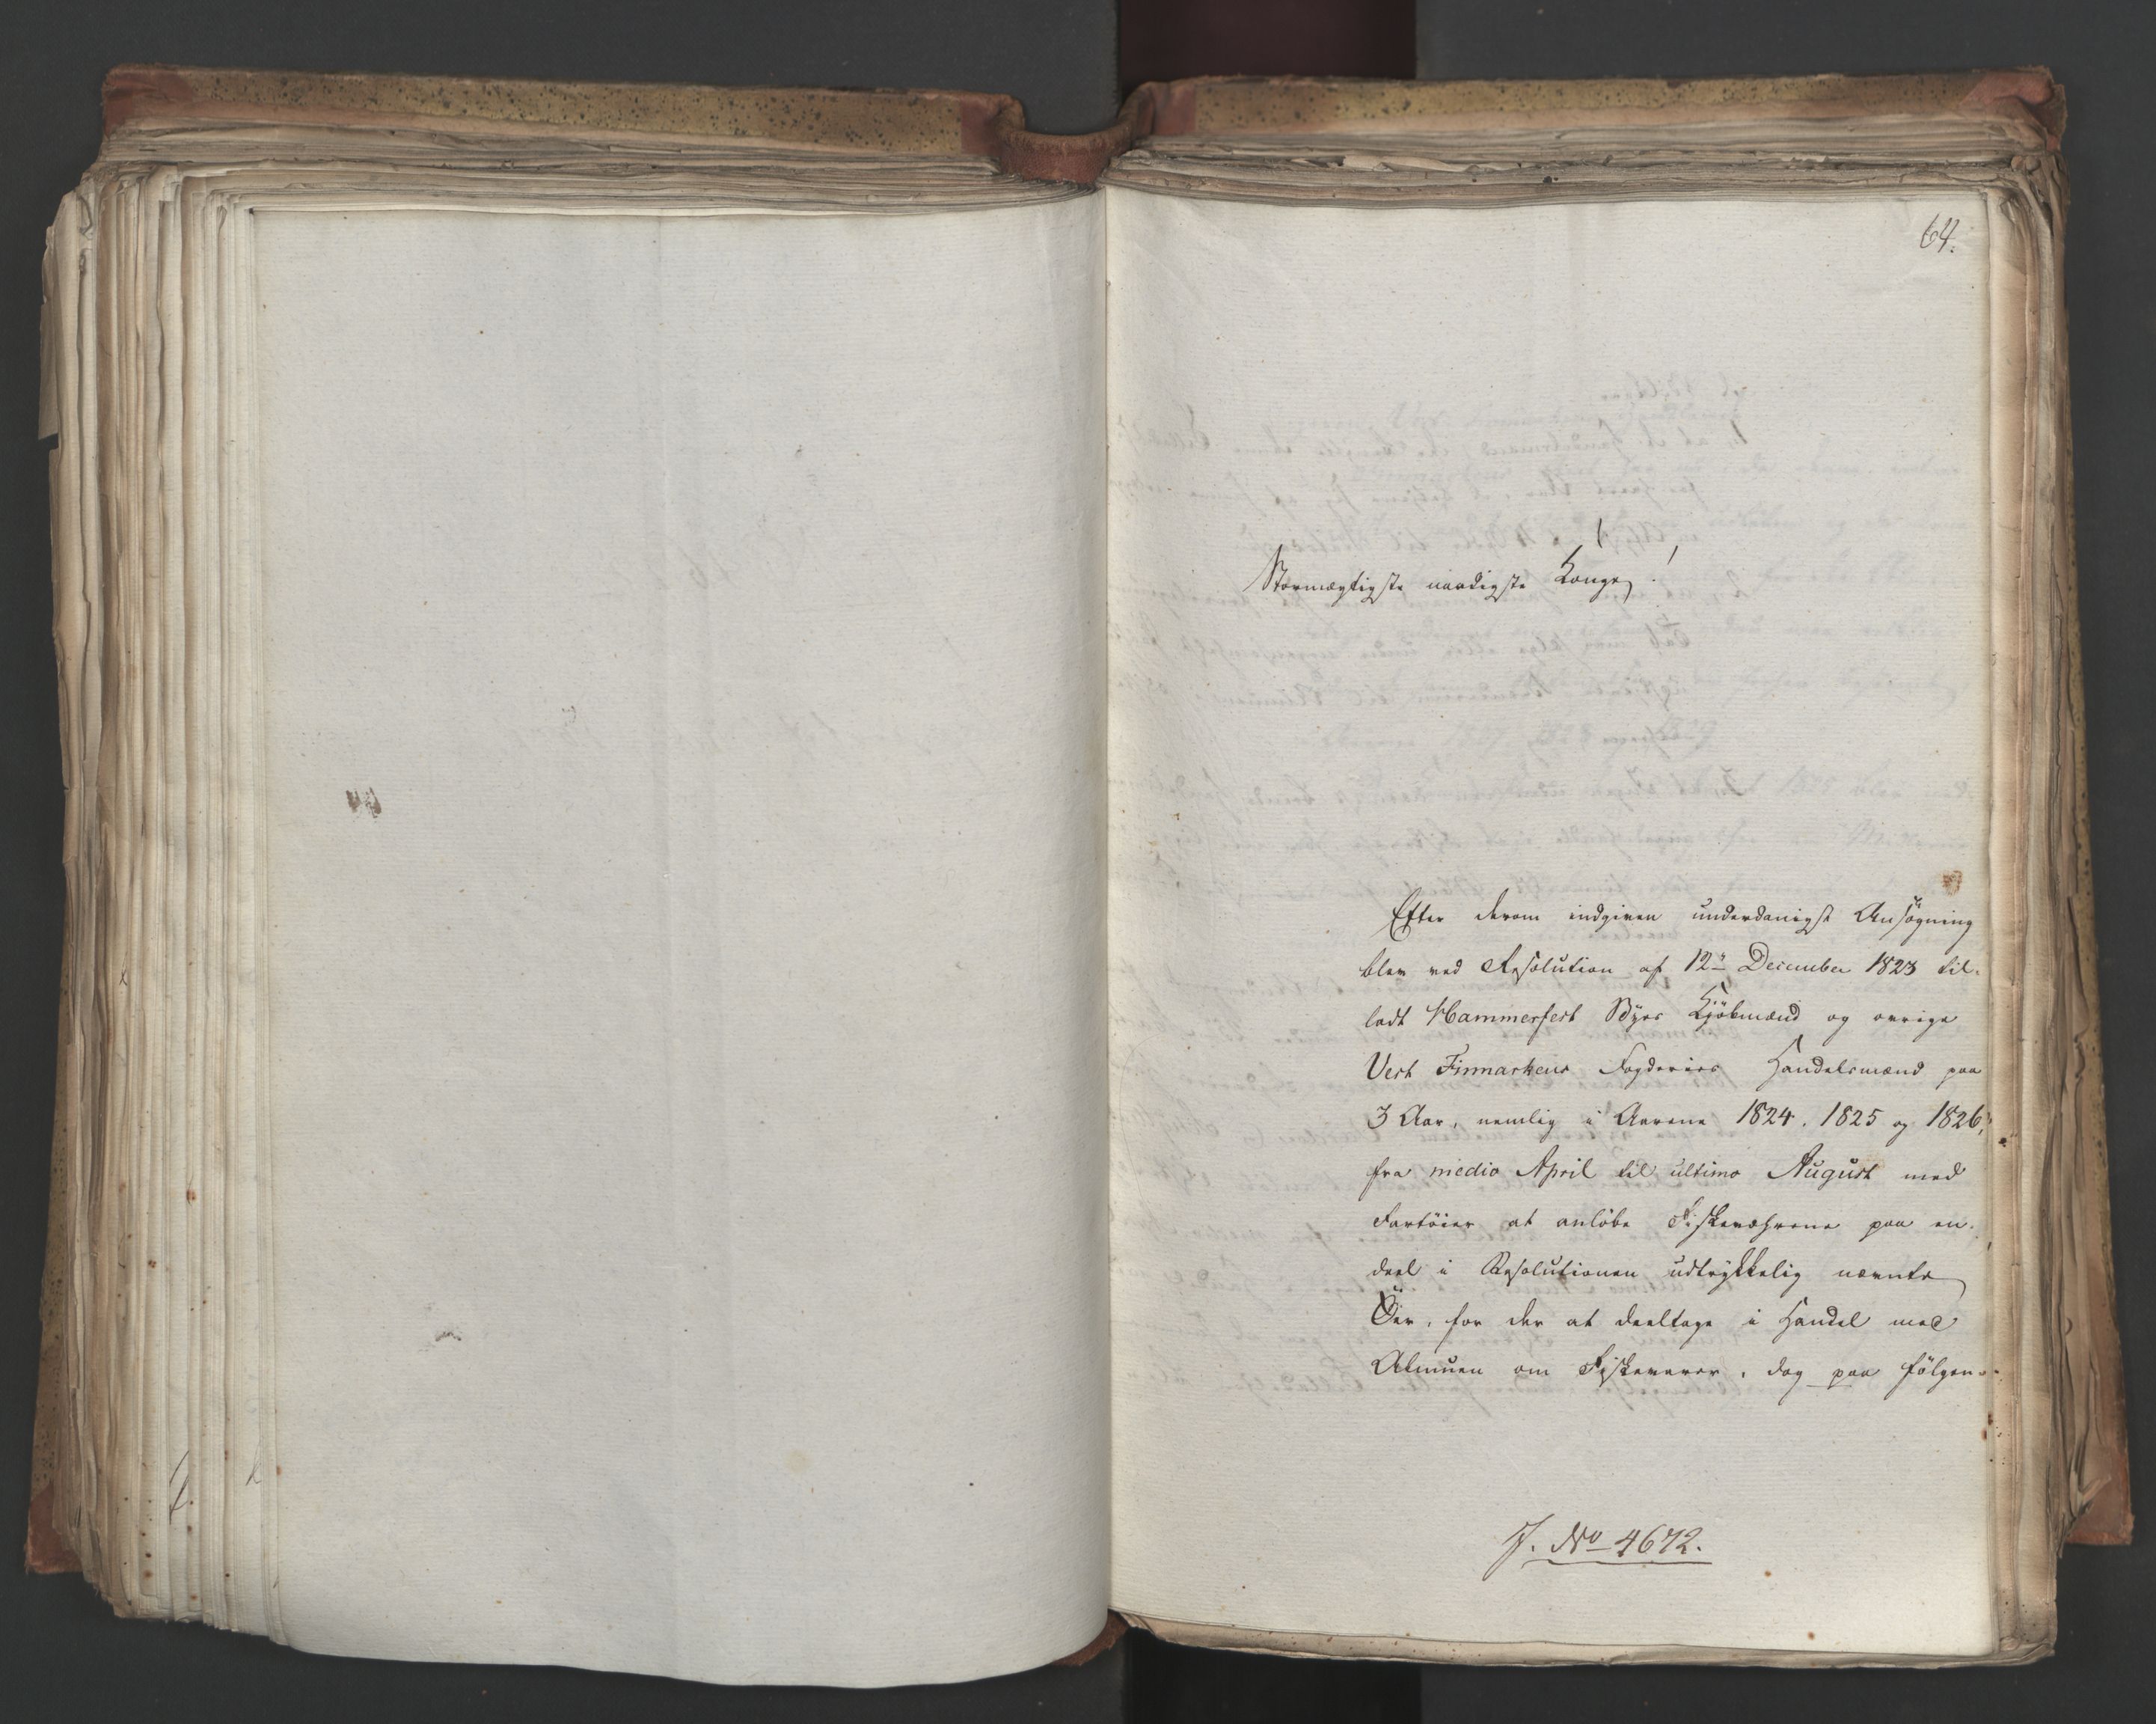 64.
Stormægtigste naadigste Konge!
Efter derom indgiven underdanigst Ansøgning
blev ved Resolution af 12te December 1823 til-
ladt Hammerfest Byes Kjöbmænd og øvrige
Vest Finmarkens Fogderies Handelsmænd paa
3 Aar, nemlig i Aarene 1824, 1825 og 1826,
fra medio April til ultimo August med
Fartöier at anlöbe Fiskeværene paa en-
deel i Resolutionen udtrykkelig nævnte
Öer, for der at deeltage i Handel med
Almuen om Fiskevarer, dog paa fölgen-
J. No 4672.